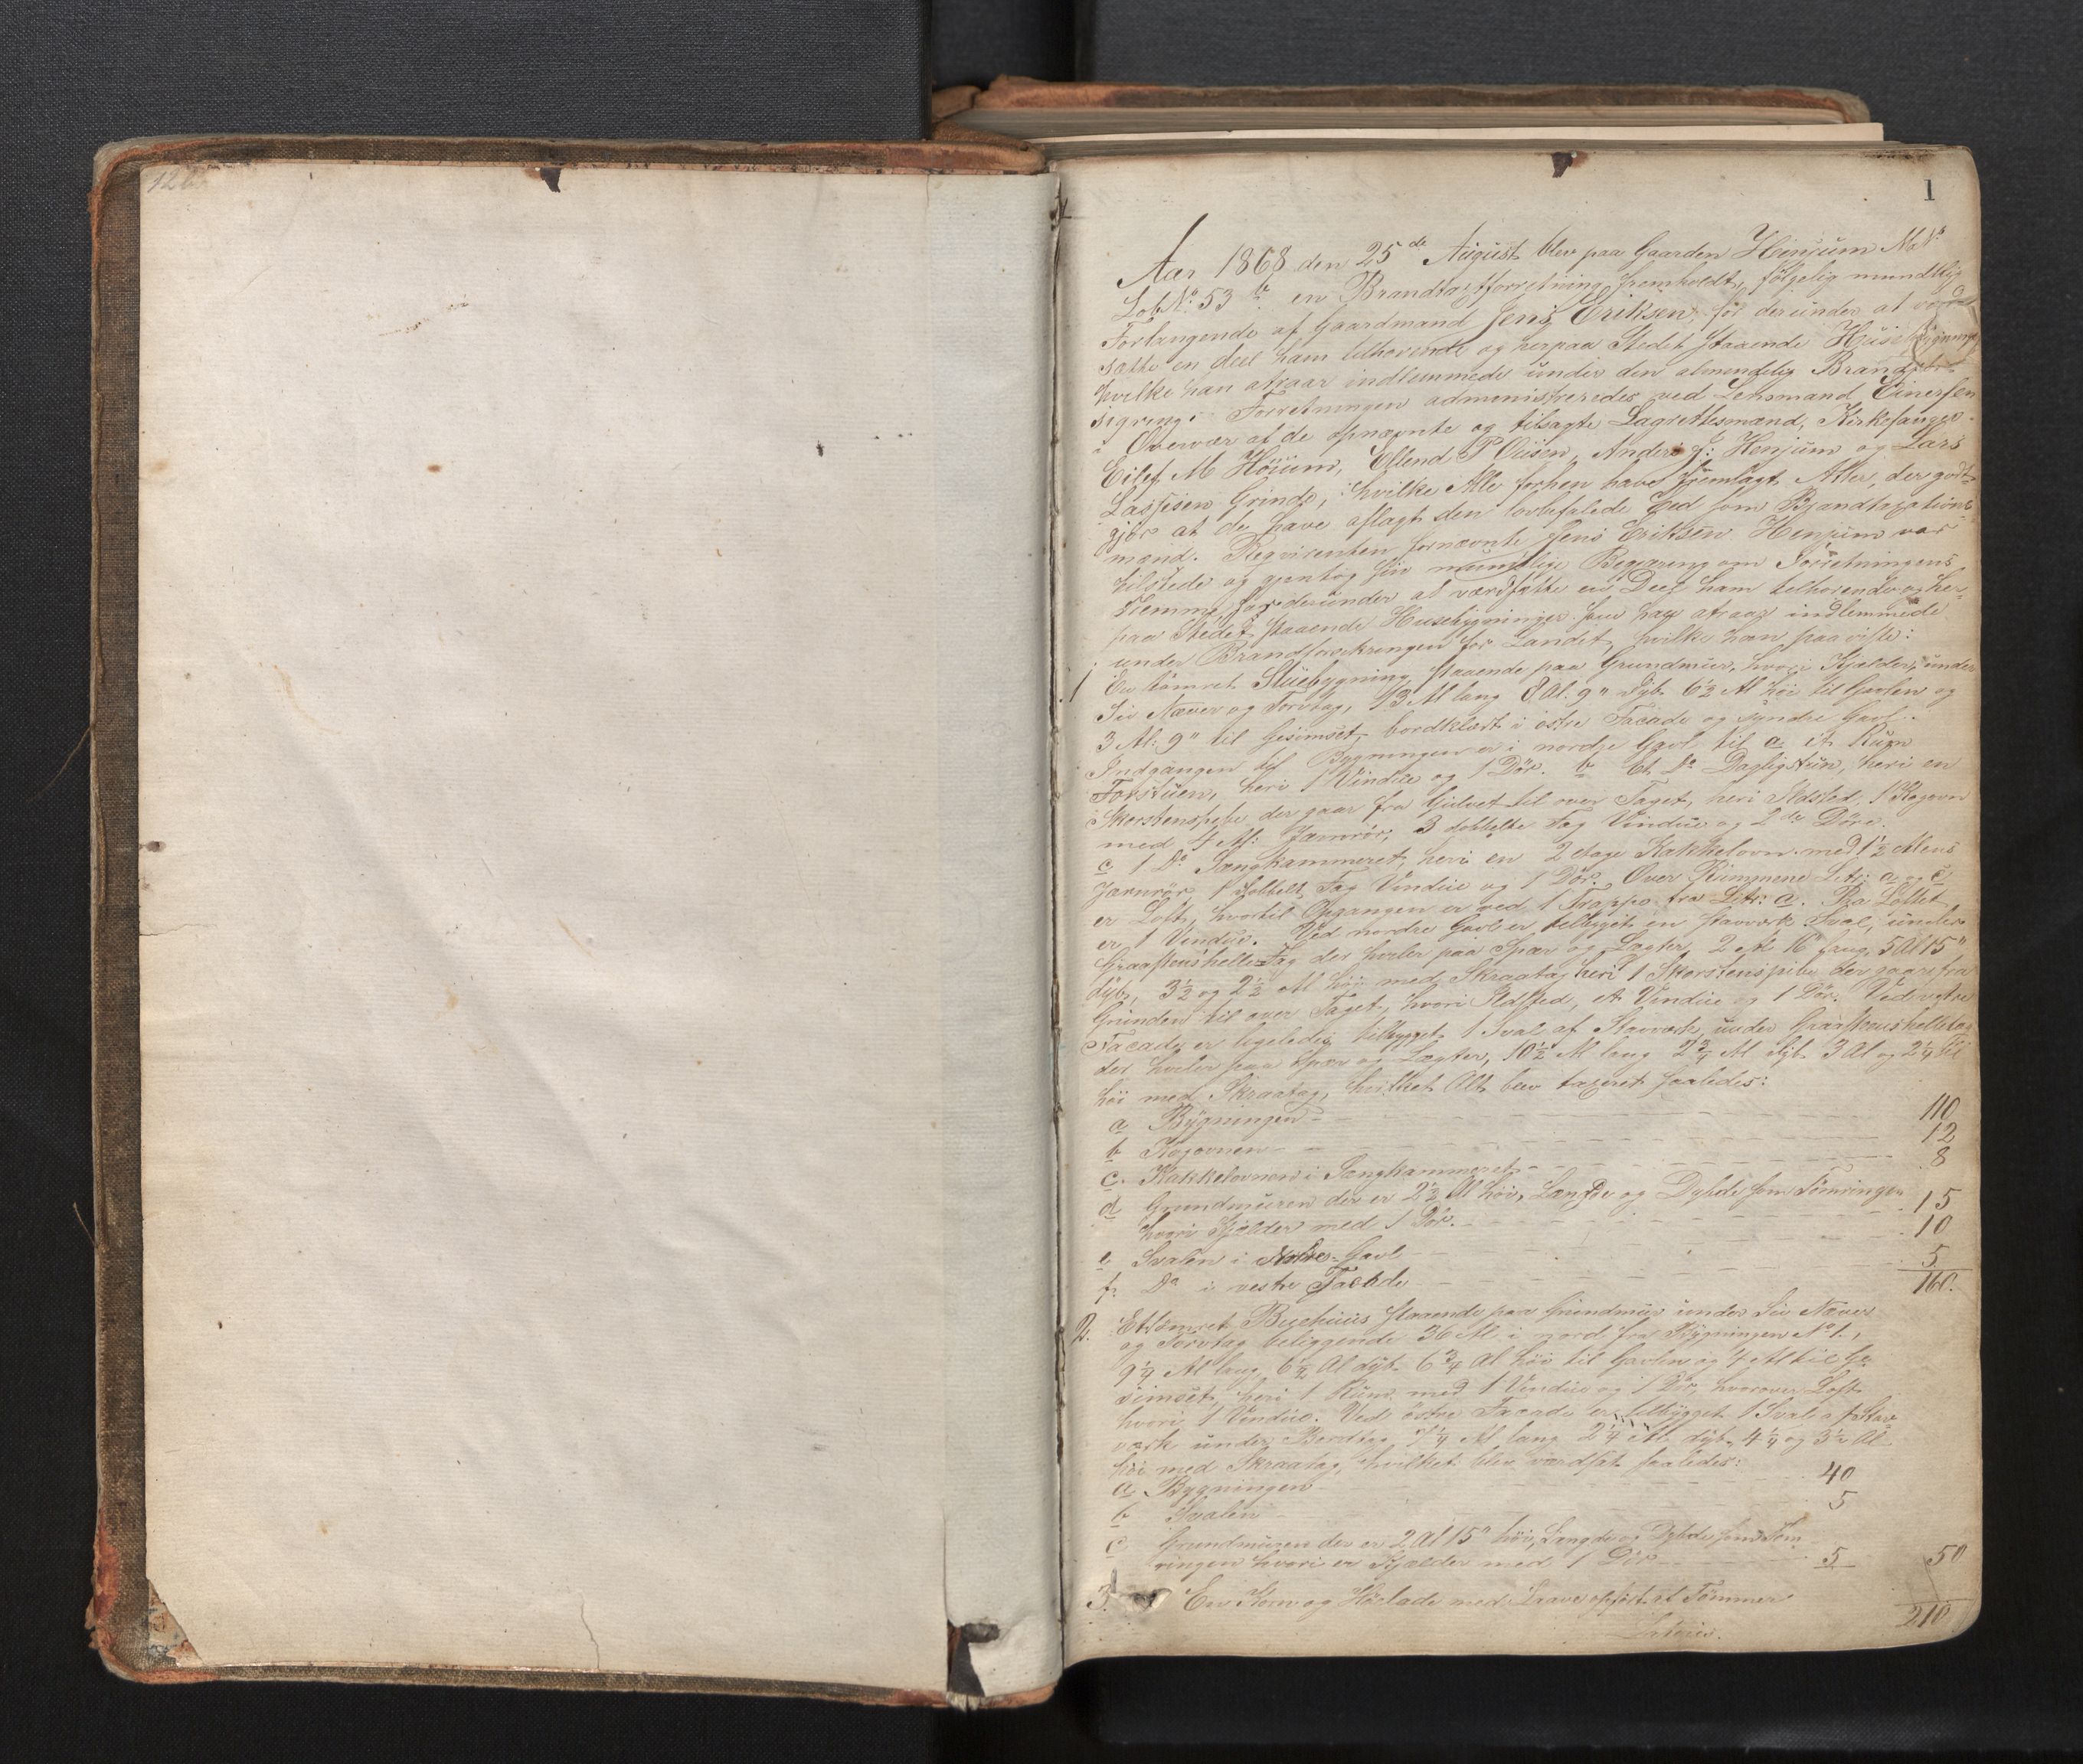 12
1
Aar 1868 den 25de August blev paa Gaarden Henjum M. No
Lob No 53 b en Brandtaxtforretning fremholdt, følgelig mundtlig
Forlangende af Gaardmand Jens Eriksen, for derunder at værd
sætte en deel ham tilhørende og herpaa Stedet staaende Husebygninger
hvilke han atraar indlemmede under den almendelig Brandfor
sigring. Forretningen administreredes ved Lensmand Einersen
i Overvær af de opnævnte og tilsagte Lagrettesmænd, Kirkesanger
Eilef M Höium, Ellend P Ölisen, Anders J: Henjum og Lars
Lassesen Grinde, hvilke Alle forhen have fremlagt Atter, der godt-
gjör at de have aflagt den lovbefalede Eed som Brandtaxations
mænd. Reqvirenten fornævnte Jens Eriksen Henjum var
tilstede og gjentog sin mundtlige Begjæring om Forretningens
Fremme, for derunder at værdsætte en Deel ham tilhörende og her-
paa Stedet staaende Husebygninger som han atraar indlemmede
under Brandforsikringen for Landet, hvilke han paaviste:
1 En tömret Stüebygning staaende paa Grundmuur, hvori Kjælder, under
Sin Næver og Torvtag, 13 Al lang 8 Al. 9" Dyb 6½ Al höi til Gavlen og
3 Al: 9" til Gesimset, bordklædt i östre Facade og syndre Gavl.
Indgangen til Bygningen er i nordre Gavl til a et Rum
Forstuen, heri 1 Vindue og 1 Dör. b Et Do Dagligstuen, heri en
Skorstenspibe der gaar fra Gulvet til over Taget, heri Ildsted, 1 Kogovn
med 4 Al: Jærnrör, 3 dobbelte Fag Vindue og 2de Döre.
c 1 Do Sengkammeret, heri en 2 etage Kakkelovn med 1½ Alens
Jærnrör 1 dobbelt Fag Vindue og 1 Dör. Over Rummene Litr: a og c
er Loft, hvortil Opgangen er ved 1 Trappe fra Litr: a. Paa Loftet
er 1 Vindue. Ved nordre Gavl er tilbygget en Stavværk Sval, under
Graastenshelletag der hviler paa Spær og Lægter, 2 Al 16" lang, 5 Al 15"
dyb, 3½ og 2½ Al höi med Skraatag heri 1 Skorstenspibe der gaar fra
Grunden til over Taget, hvori Ildsted, et Vindue og 1 Dör. Ved vestre
Facade er ligeledes tilbygget 1 Sval af Stavværk, under Graastenshelletag
der hviler paa Spær og Lægter, 10½ Al lang 2¾ Al dyb 3 Al og 2¼ Al
höi med Skraatag, hvilket Alt blev taxeret saaledes:
a Bygningen 110
b Kogovnen 12
c. Kakkelovnen i Sengkammeret 8
d Grundmuren der er 2½ Al höi, Længde og Dybde som Tömringen
hvori Kjælder med 1 Dör. 15
e Svalen i Nordre Gavl 10
f. Do i vestre Facade 5
160.
2. Et tömret Buehuus staaende paa Grundmur under Sin Næver
og Torvtag beliggende 36 Al i nord fra Bygningen No 1.,
9¼ Al lang, 6½ Al dyb 6¾ Al höi til Gavlen og 4 Al til Ge
simset, heri 1 Rum med 1 Vindue og 1 Dör, hvorover Loft
hvori 1 Vindue. Ved östre Facade er tilbygget 1 Sval af Stav
værk under Bordtag, 7¼ Al lang 2¼ Al dyb, 4¼ og 3½ Al
höi med Skraatag, hvilket blev værdsat saaledes:
a Bygningen 40
b Svalen 5
c Grundmuren der er 2 Al 15" höi, Længde og Dybde som Töm
ringen hvori er Kjælder med 1 Dör 5 50
3. En Korn og Höelade med Laave opfört af Tömmer
Lateris. 210